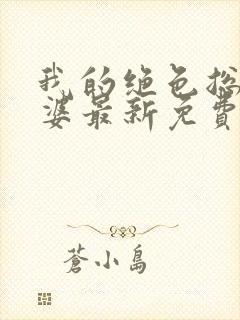 我的绝色总
婆最新免費
蒼小島